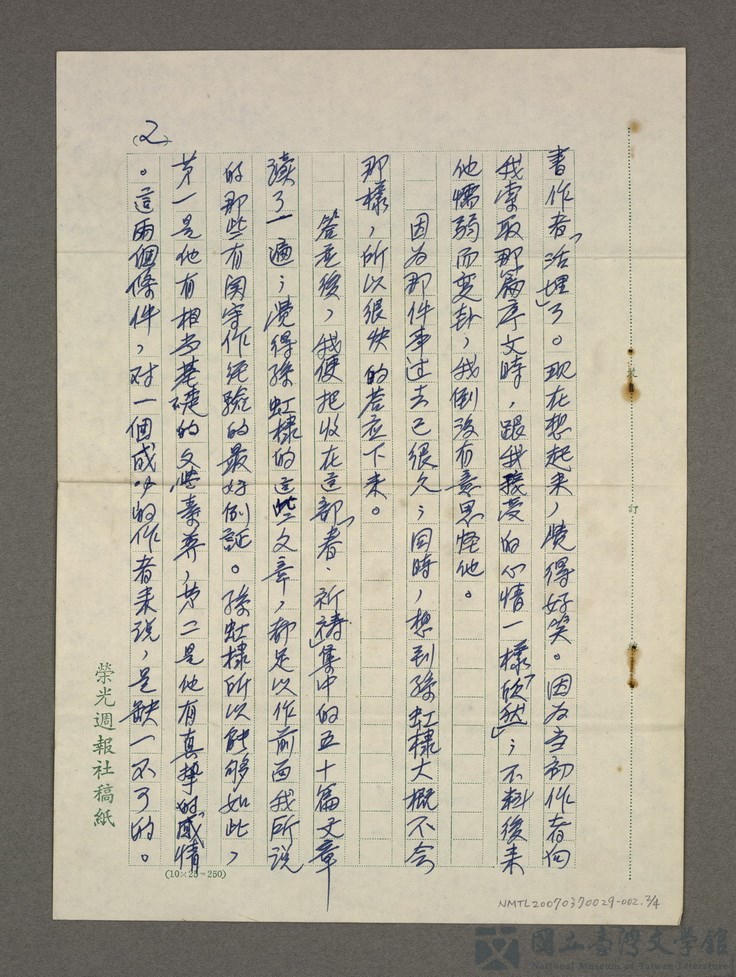 (2)
書作者「活埋」了。現在想起来，覺得好笑。因为当初作者向
我索取那篇序文時，跟我接受的心情一樣「欣然」；不料後来
他懦弱而变卦，我倒沒有意思怪他。
因为那件事过去已很久；同時，想到孫虹棣大概不会
那樣，所以很快的答应下来。
答应後，我便把收在這部「春·祈禱」集中的五十篇文章
讀了一遍；覺得孫虹棣的這些文章，都足以作前面我所说
的那些有関写作経驗的最好例証。孫虹棣所以能够如此，
第一是他有相当基礎的文学素养，第二是他有真摯的感情
。這兩個條件，对一個成功的作者来说，是缺一不可的。
榮光週報社稿紙
(10×25=250)
裝
訂
NMTL20070370029-002.2/4
國立臺灣文學館
National Museum of Taiwan Literature